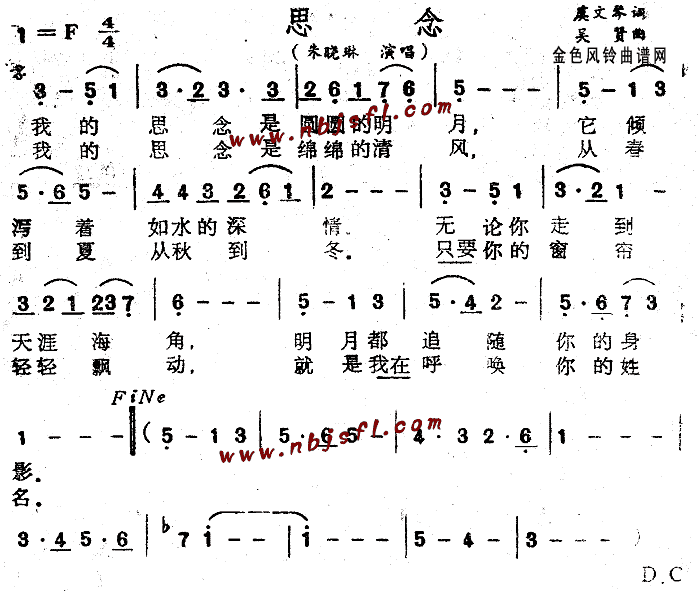 思 念
1=F 4/4
虞文琴 词
吴贤 曲
(朱晓琳 演唱)
金色风铃曲谱网
3 - 5 1 | 3 · 2 3 · 3 | 2 6 1 7 6 | 5 - - - | 5 - 1 3 |
我的 思 念 是 圆圆的明 月, 它 倾
我的 思 念 是 绵绵的清 风, 从 春
www.nbjsfl.com
5 · 6 5 - | 4 4 3 2 6 1 | 2 - - - | 3 - 5 1 | 3 · 2 1 -
泻 着 如水的深 情. 无 论你 走 到
到 夏 从秋 到 冬. 只要 你的 窗 帘
3 2 1 2 3 7 | 6 - - - | 5 - 1 3 | 5 · 4 2 - | 5 · 6 7 3
天涯 海 角, 明 月都 追 随 你的身
轻轻 飘 动, 就 是我在呼 唤 你的姓
FiNe
1 - - - ( 5 - 1 3 | 5 · 6 5 - | 4 · 3 2 · 6 | 1 - - - |
www.nbjsfl.com
影.
名.
3 · 4 5 · 6 | ♭7 1 - - | 1 - - - | 5 - 4 - | 3 - - - )
D.C